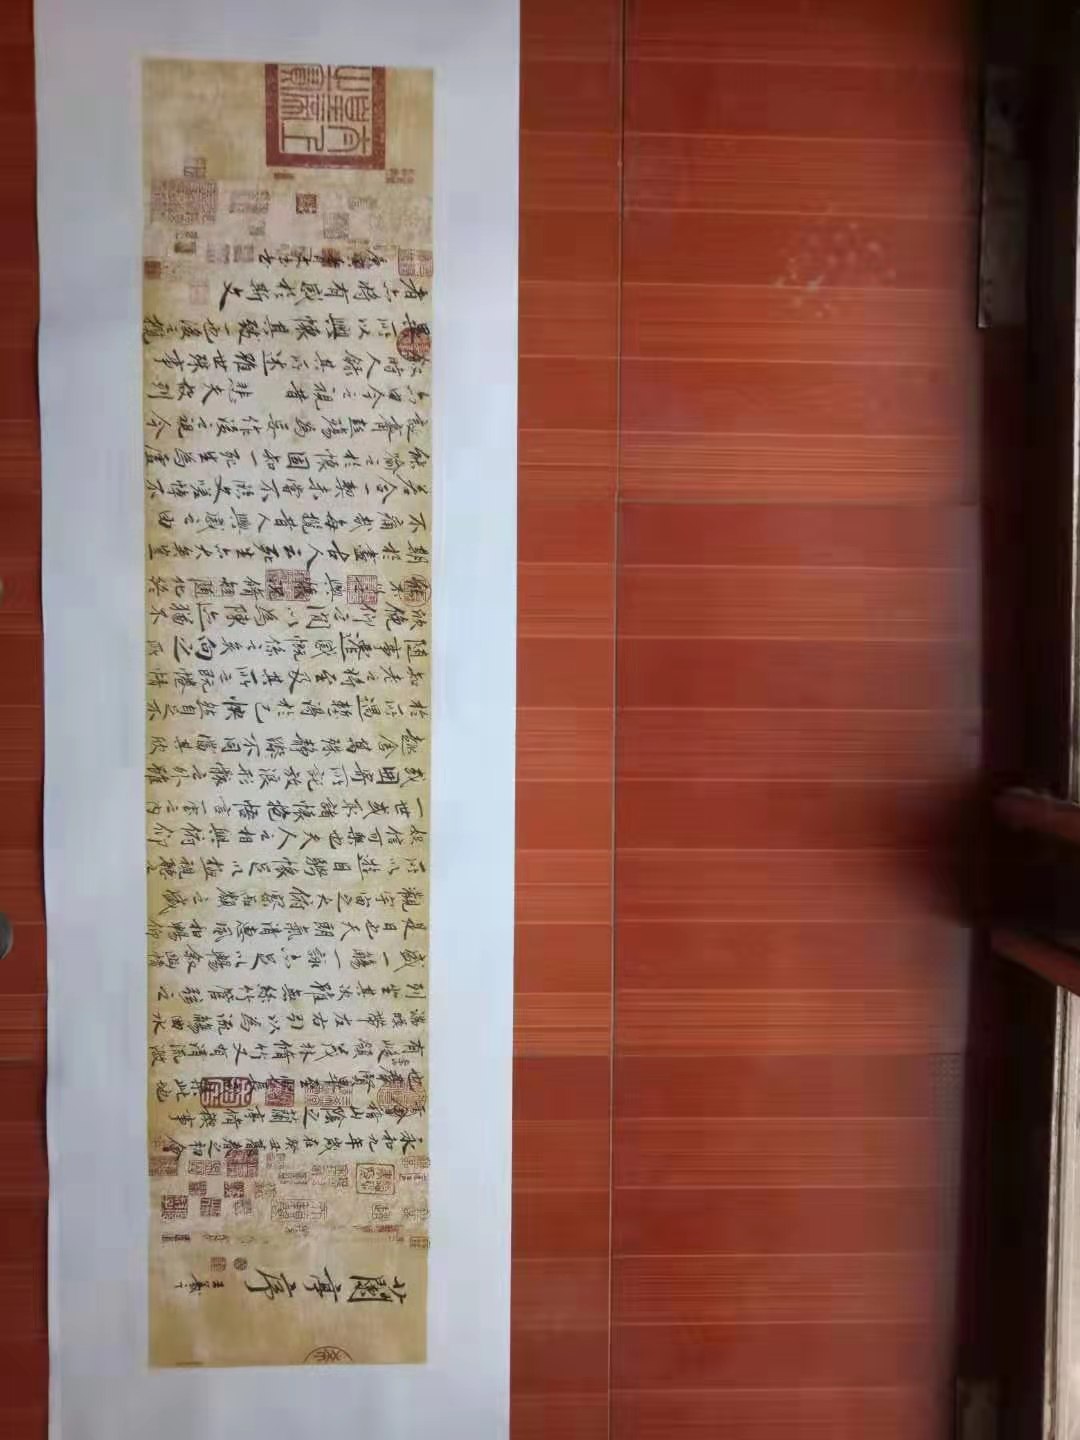 蘭亭序
王羲之
永和九年歲在癸丑暮春之初會
于會稽山陰之蘭亭脩稧事
也群賢畢至少長咸集此地
有崇山峻領茂林脩竹又有清流激
湍暎帶左右引以為流觴曲水
列坐其次雖無絲竹管弦之
盛一觴一詠亦足以暢敘幽情
是日也天朗氣清惠風和暢仰
觀宇宙之大俯察品類之盛
所以遊目騁懷足以極視聽之
娛信可樂也夫人之相與俯仰
一世或取諸懷抱悟言一室之內
或因寄所託放浪形骸之外雖
趣舍萬殊靜躁不同當其欣
於所遇暫得於己怏然自足不
知老之將至及其所之既惓情
隨事遷感慨係之矣向之所
欣俛仰之閒以為陳迹猶不
能不以之興懷況脩短隨化終
期於盡古人云死生亦大矣豈
不痛哉每攬昔人興感之由
若合一契未嘗不臨文嗟悼不
能喻之於懷固知一死生為虛
誕齊彭殤為妄作後之視今
亦由今之視昔悲夫故列
敘時人錄其所述雖世殊事
異所以興懷其致一也後之攬
者亦將有感於斯文